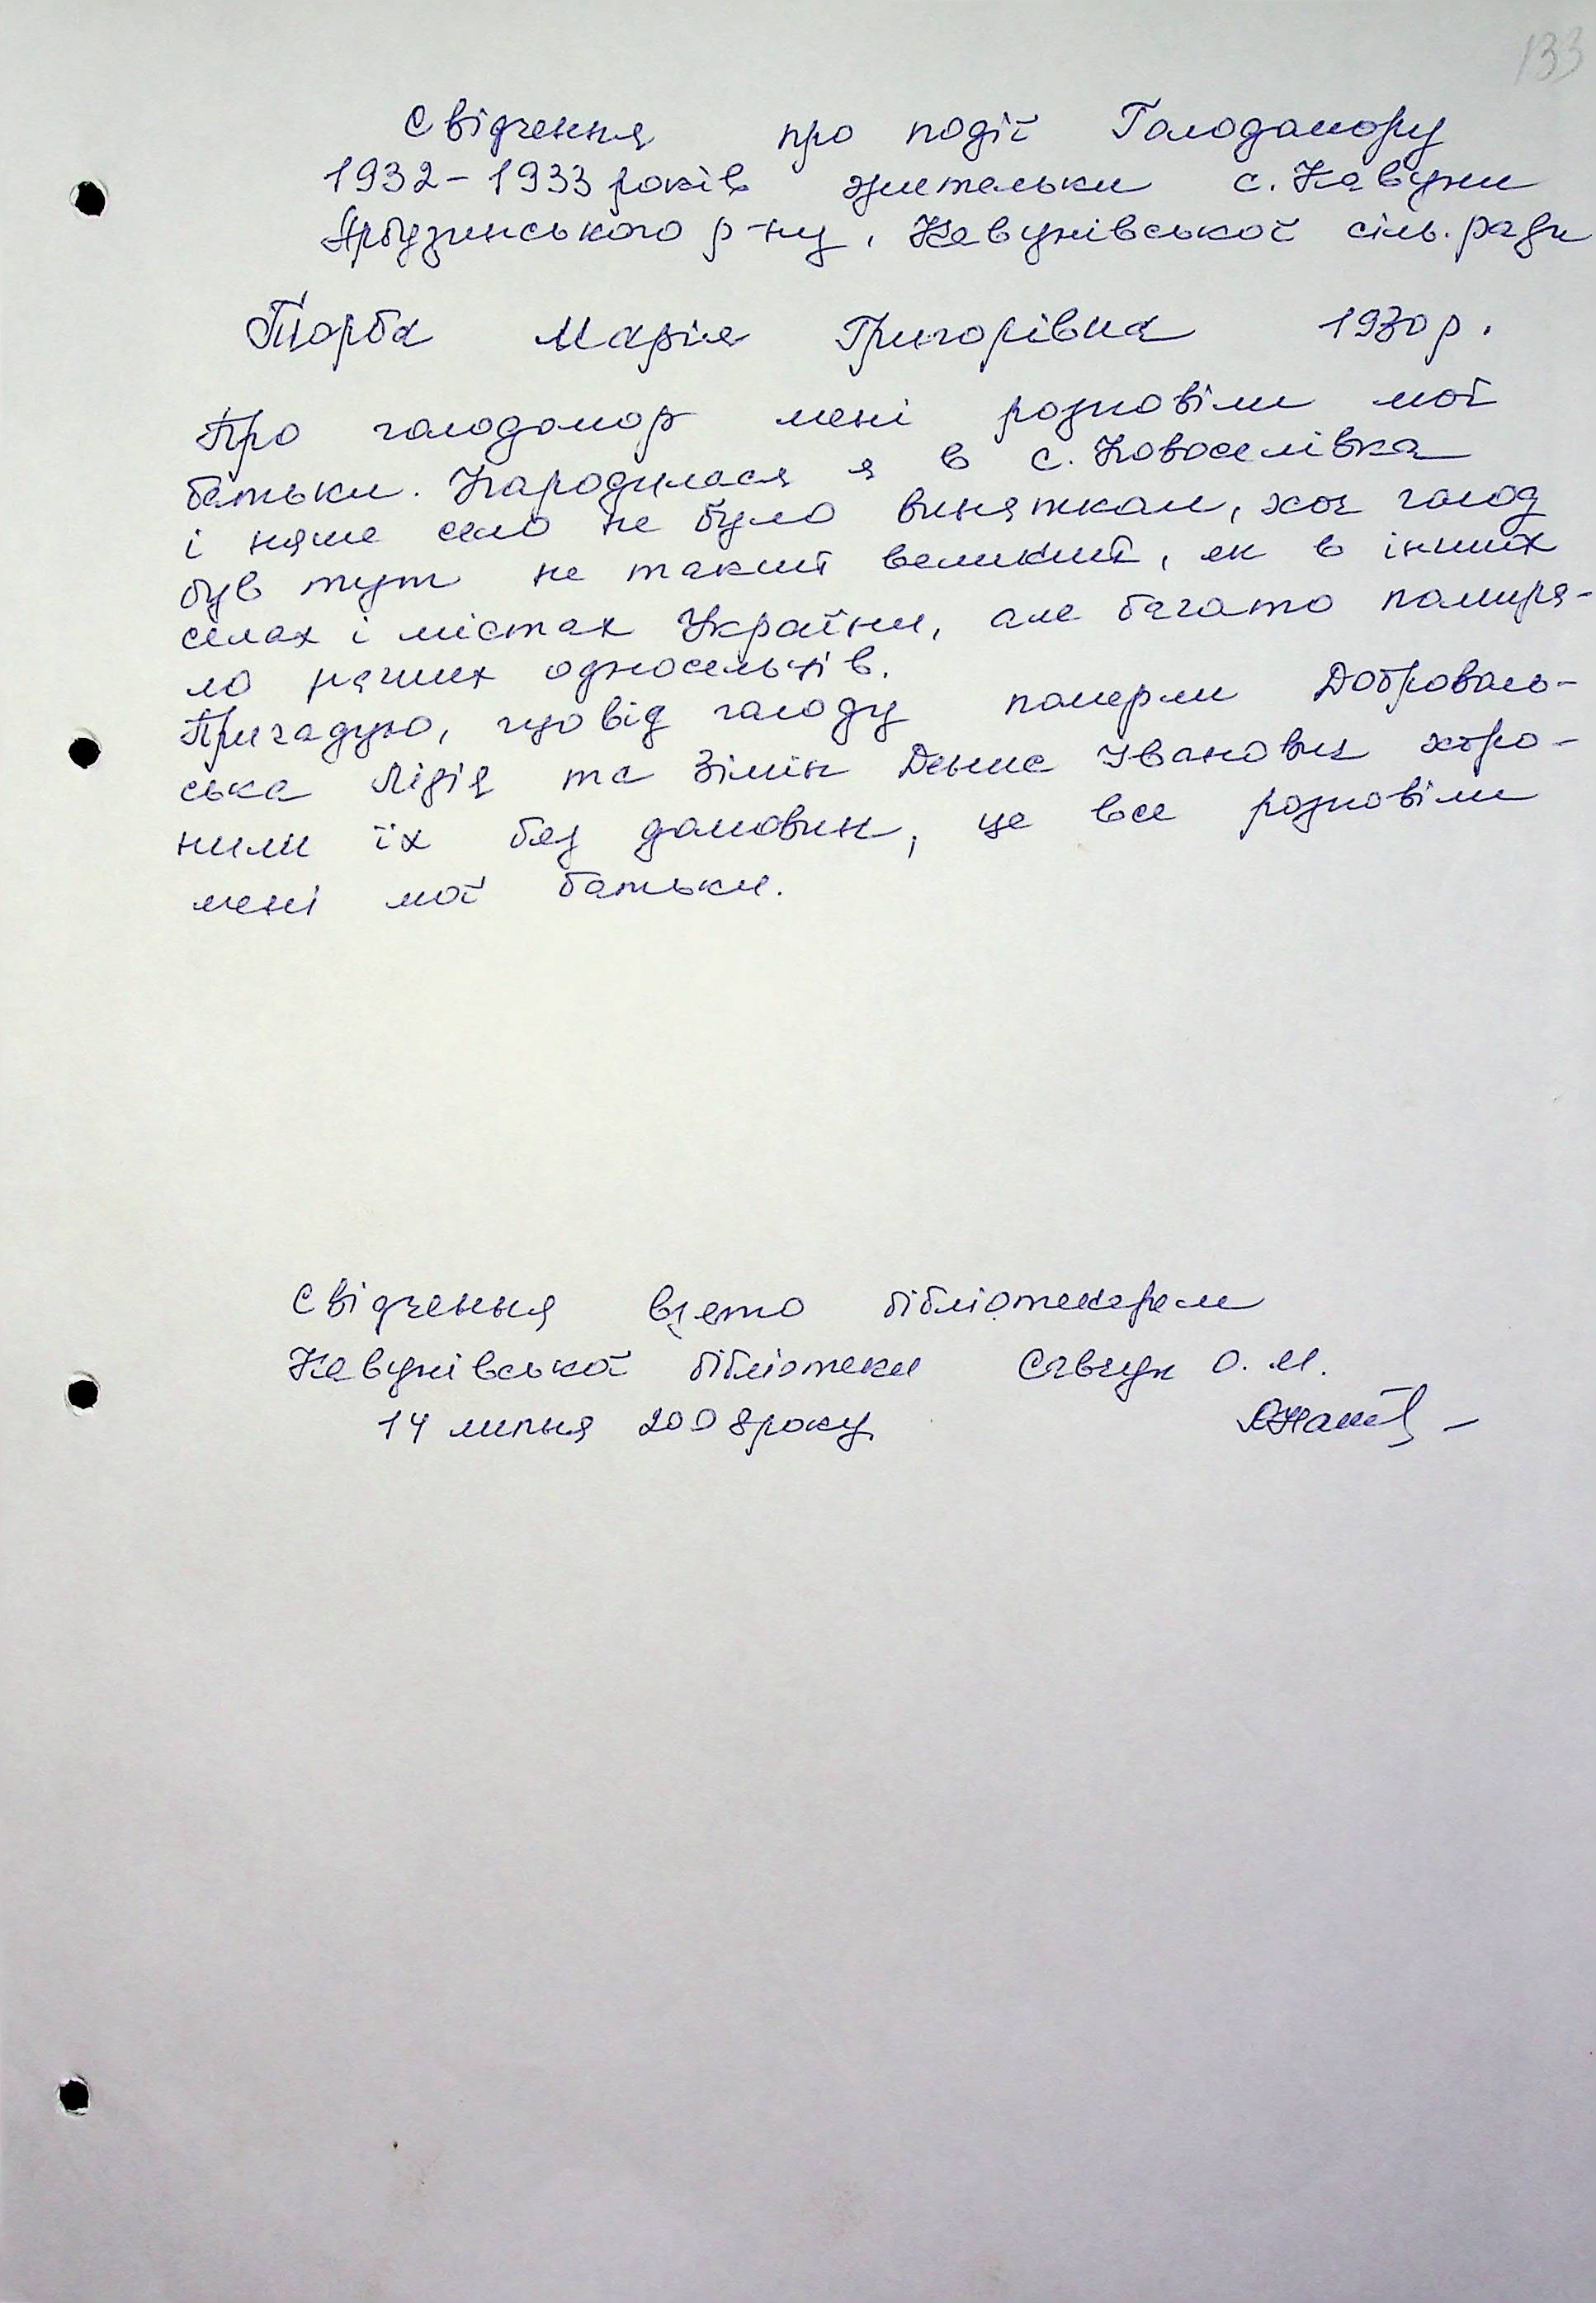 133
Свідчення про події Голодомору
1932-1933 років жительки с. Кавуни
Арбузинського р-ну, Кавунівської сіль. ради
Торба Марія Григорівна 1930 р.
Про голодомор мені розповіли мої
батьки. Народилася я в с. Новоселівка
і наше село не було винятком, хоч голод
був тут не такий великий, як в інших
селах і містах України, але багато помира-
ло наших односельців.
Пригадую, що від голоду померли Доброволь-
ська Лідія та Зімін Денис Іванович хоро-
нили їх без домовин, це все розповіли
мені мої батьки.
Свідчення взято бібліотекарем
Кавунівської бібліотеки Савчук О. М.
14 липня 2008 року